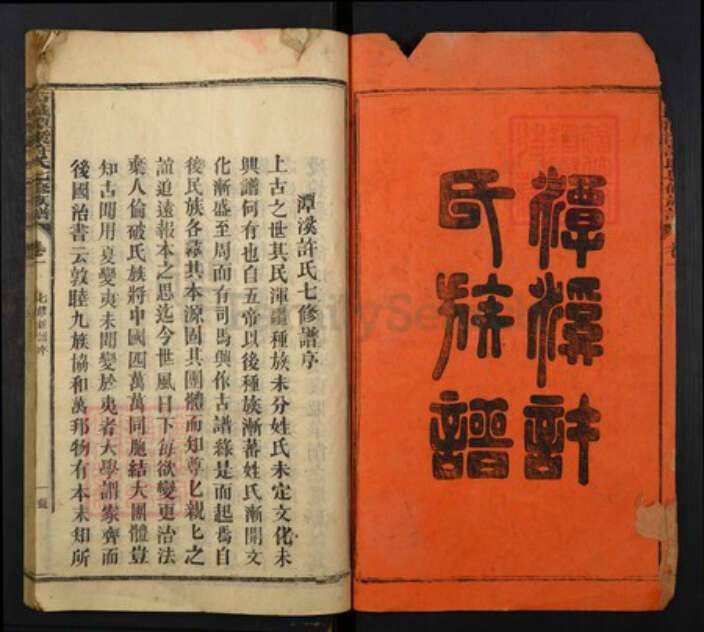 潭溪許
氏族譜
潭溪許氏七修譜序
上古之世其民渾渾種族未分姓氏未定文化未
興譜何有也自五帝以後種族漸蕃姓氏漸開文
化漸盛至周而有司馬興作古譜緣是而起焉自
後民族各尋其本源固其團體而知尊匕親匕之
誼追遠報本之思迄今世風日下每欲變更治法
棄人倫破氏族將中國四萬萬同胞結大團體豈
知古聞用夏變夷未聞變於夷者大學謂家齊而
後國治書云敦睦九族協和萬邦物有本末知所
卷一
一
FamilySearch